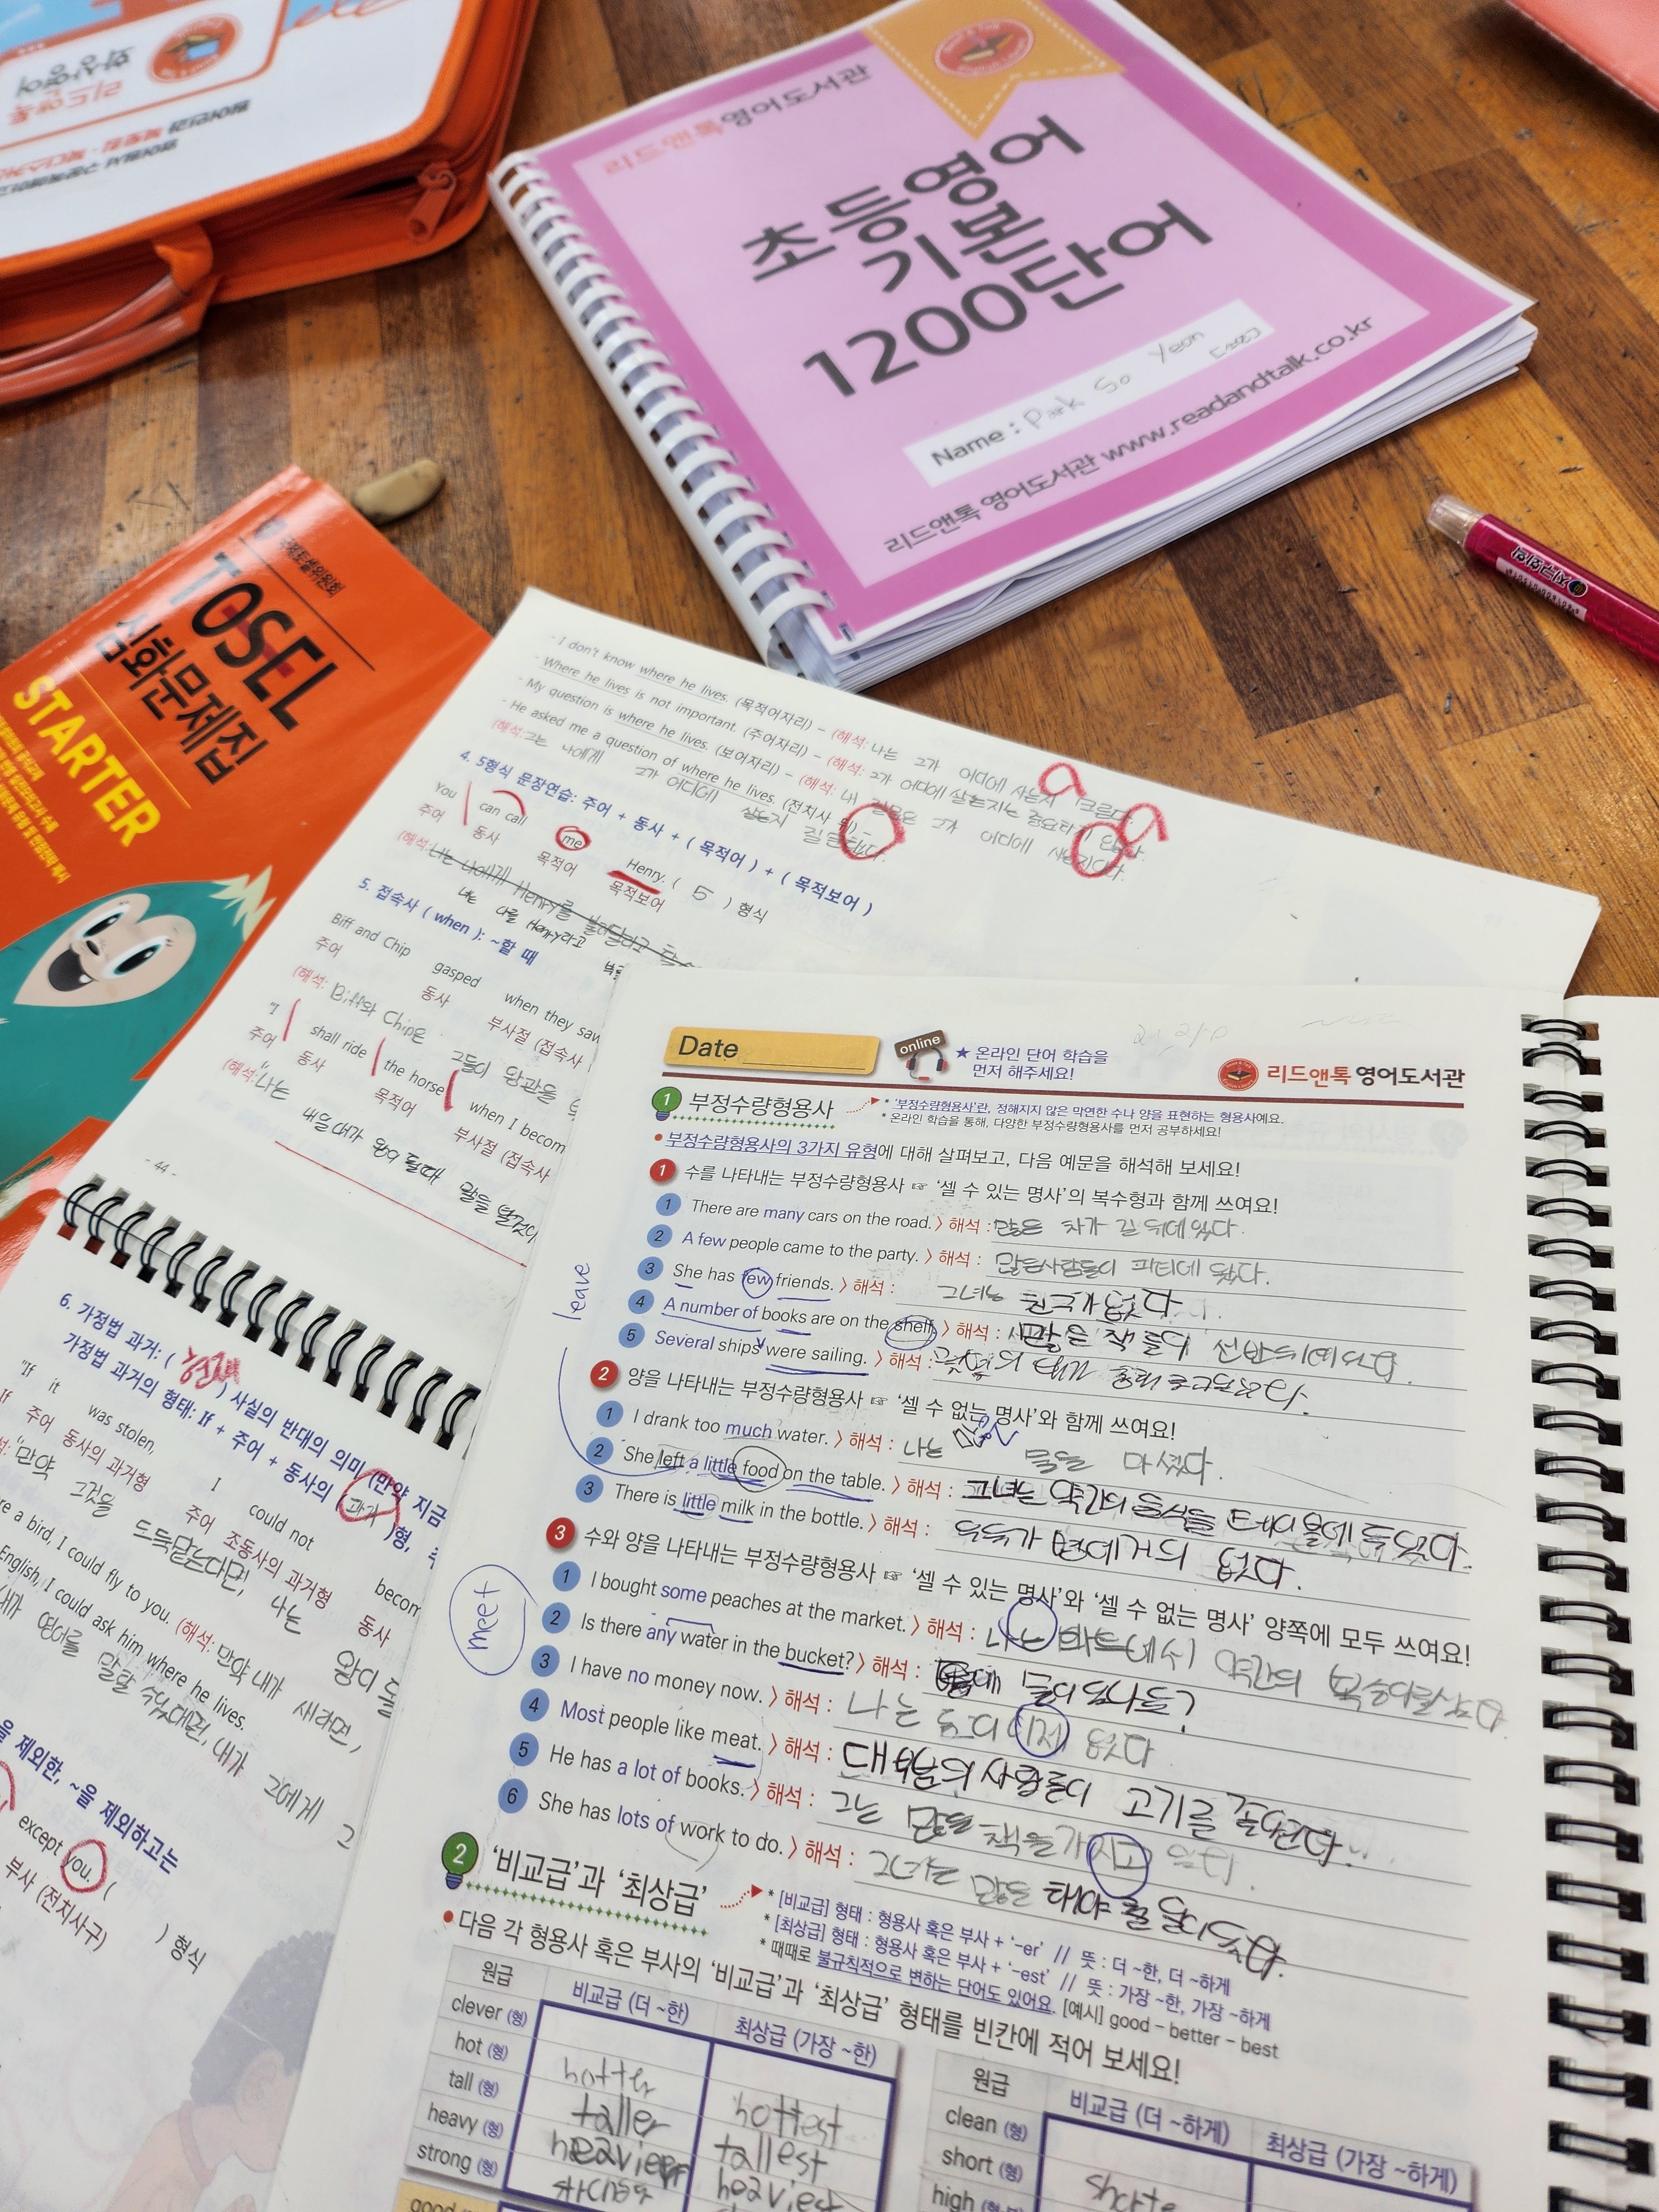 리드앤톡
화상영어
리드앤톡영어도서관
초등영어
기본
1200단어
Name : Park So Yeon
리드앤톡 영어도서관 www.readandtalk.co.kr
지구화학
TOSEL
심화문제집
STARTER
- I don't know where he lives. (목적어자리) – (해석: 나는 그가 어디에 사는지 모른다.
- Where he lives is not important. (주어자리) – (해석: 그가 어디에 살는지는 중요하
- My question is where he lives. (보어자리) – (해석: 내 질문은 그가 어디에 사는지이다.
- He asked me a question of where he lives. (전치사 뒤) –
(해석: 그는 나에게 그가 어디에 살는지 질문했다.
4. 5형식 문장연습: 주어 + 동사 + ( 목적어 ) + ( 목적보어 )
You can call me Henry. ( 5 ) 형식
주어 동사 목적어 목적보어
(해석: 나는 나에게 Henry를
너는 나를 Henry라고
5. 접속사 ( when ): ~할 때
Biff and Chip gasped when they saw
주어 동사 부사절 (접속사
(해석: Biff와 Chip은 그들이
"I shall ride the horse when I becom
주어 동사 목적어 부사절 (접속사
(해석: "나는 내일 내가 왕이 될때 말을 탈것이
- 44 -
6. 가정법 과거: ( 현재 ) 사실의 반대의 의미 (만약 지금
가정법 과거의 형태: If + 주어 + 동사의 ( 과거 )형,
"If it was stolen, I could not becom
If 주어 동사의 과거형 주어 조동사의 과거형 동사
"만약 그것을 나는 왕이 될
re a bird, I could fly to you. (해석: 만약 내가 새라면,
English, I could ask him where he lives.
내가 영어를 말할 수있었다면, 내가 그에게 그
을 제외한, ~을 제외하고는
except you. ( ) 형식
부사 (전치사구)
Date
online
★ 온라인 단어 학습을
먼저 해주세요!
리드앤톡 영어도서관
1 부정수량형용사
* '부정수량형용사'란, 정해지지 않은 막연한 수나 양을 표현하는 형용사예요.
* 온라인 학습을 통해, 다양한 부정수량형용사를 먼저 공부하세요!
• 부정수량형용사의 3가지 유형에 대해 살펴보고, 다음 예문을 해석해 보세요!
1 수를 나타내는 부정수량형용사 ☞ '셀 수 있는 명사'의 복수형과 함께 쓰여요!
1 There are many cars on the road. > 해석 : 많은 차가 길 위에 있다.
2 A few people came to the party. > 해석 : 많은사람들이 파티에 왔다.
3 She has few friends. > 해석 : 그녀는 친구가 없다.
4 A number of books are on the shelf. > 해석 : 많은 책들이 선반위에 있다.
5 Several ships were sailing. > 해석 :
leave
2 양을 나타내는 부정수량형용사 ☞ '셀 수 없는 명사'와 함께 쓰여요!
1 I drank too much water. > 해석 : 나는 많은 물을 마셨다.
2 She left a little food on the table. > 해석 : 그녀는 약간의 음식을 테이블에 두었다.
3 There is little milk in the bottle. > 해석 : 우유가 병에 거의 없다.
3 수와 양을 나타내는 부정수량형용사 ☞ '셀 수 있는 명사'와 '셀 수 없는 명사' 양쪽에 모두 쓰여요!
meet
1 I bought some peaches at the market. > 해석 : 나는 마트에서 약간의 복숭아를 샀다
2 Is there any water in the bucket? > 해석 : 물이 있나요?
3 I have no money now. > 해석 : 나는 돈이 이제 없다
4 Most people like meat. > 해석 : 대부분의 사람들이 고기를 좋아한다.
5 He has a lot of books. > 해석 : 그는 많은 책을 가지고 있다.
6 She has lots of work to do. > 해석 : 그녀는 많은 해야 할 일이 있다.
2 '비교급'과 '최상급'
* [비교급] 형태 : 형용사 혹은 부사 + '-er' // 뜻 : 더 ~한, 더 ~하게
* [최상급] 형태 : 형용사 혹은 부사 + '-est' // 뜻 : 가장 ~한, 가장 ~하게
* 때때로 불규칙적으로 변하는 단어도 있어요. [예시] good – better – best
• 다음 각 형용사 혹은 부사의 '비교급'과 '최상급' 형태를 빈칸에 적어 보세요!
원급 비교급 (더 ~한) 최상급 (가장 ~한)
clever (형)
hot (형) hotter hottest
tall (형) taller tallest
heavy (형) heavier heaviest
strong (형)
원급 비교급 (더 ~하게) 최상급 (가장 ~하게)
clean (형)
short (형)
high